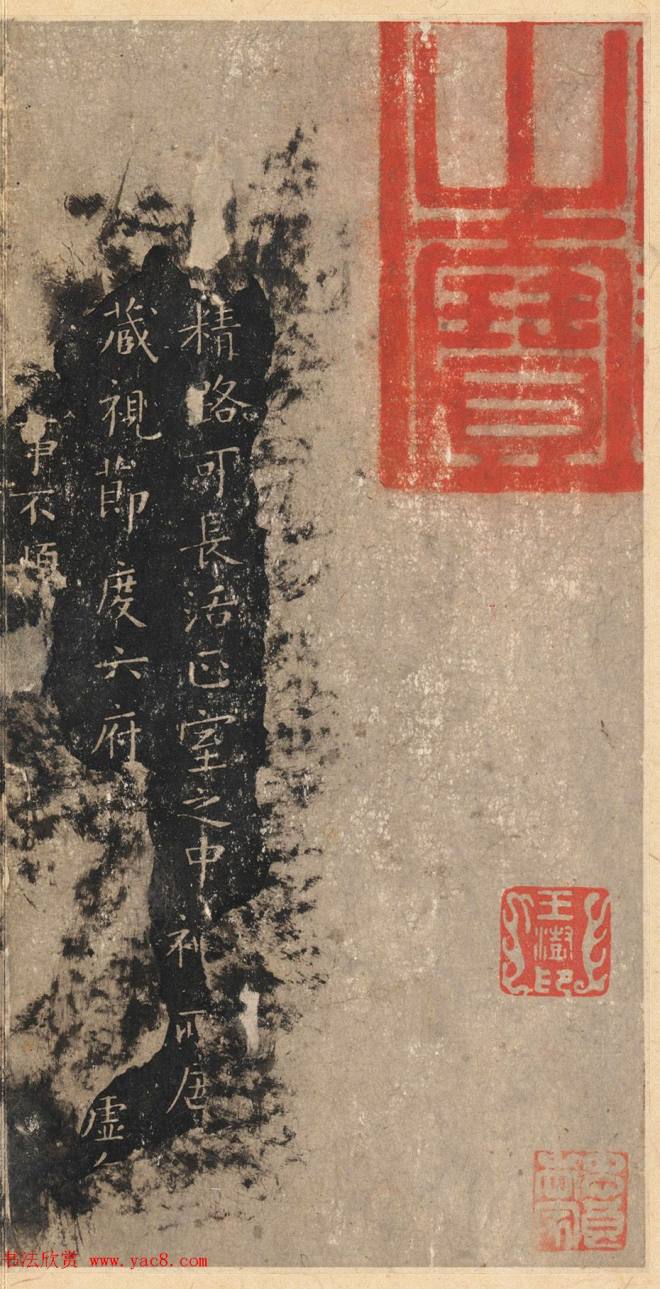 精路可長活正室之中神所居
藏視節度六府
爭不煩
虛
山
寶
王澍印
书法欣赏 www.yac8.com